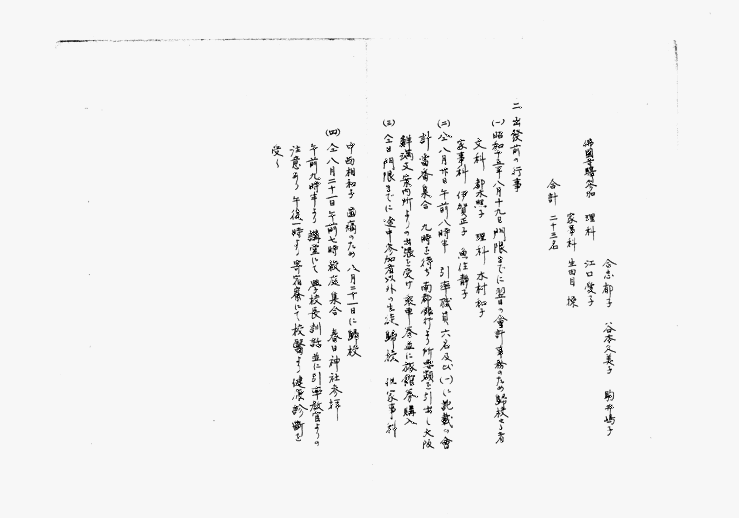 合志郁子 谷本久美子 駒井鳩子
佛國寺ヨリ參加 理科 江口愛子
家事科 生田目 操
合計 二十三名
二、出發前の行事
(一)昭和十五年八月十九日 門限までに翌日の會計事務のため歸校せる者
文科 鄙木照子 理科 木村和子
家事科 伊賀正子 魚住静子
(二)仝 八月廿日 午前八時半 引率職員六名及び(一)に記載の會
計當番集合 九時を待ち南都銀行より所要額を引出し大阪
鮮滿支案内所よりの出張を受け 乘車券並に旅館券購入
(三)仝日 門限までに途中參加者以外の生徒歸校 但家事科
中西相和子 齒痛のため八月二十一日に歸校
(四)仝 八月二十一日 午前七時 校庭集合 春日神社參拜
午前九時半より 講堂にて學校長訓話並に引率教官よりの
注意あり 午後一時より寄宿寮にて校醫より健康診斷を
受く